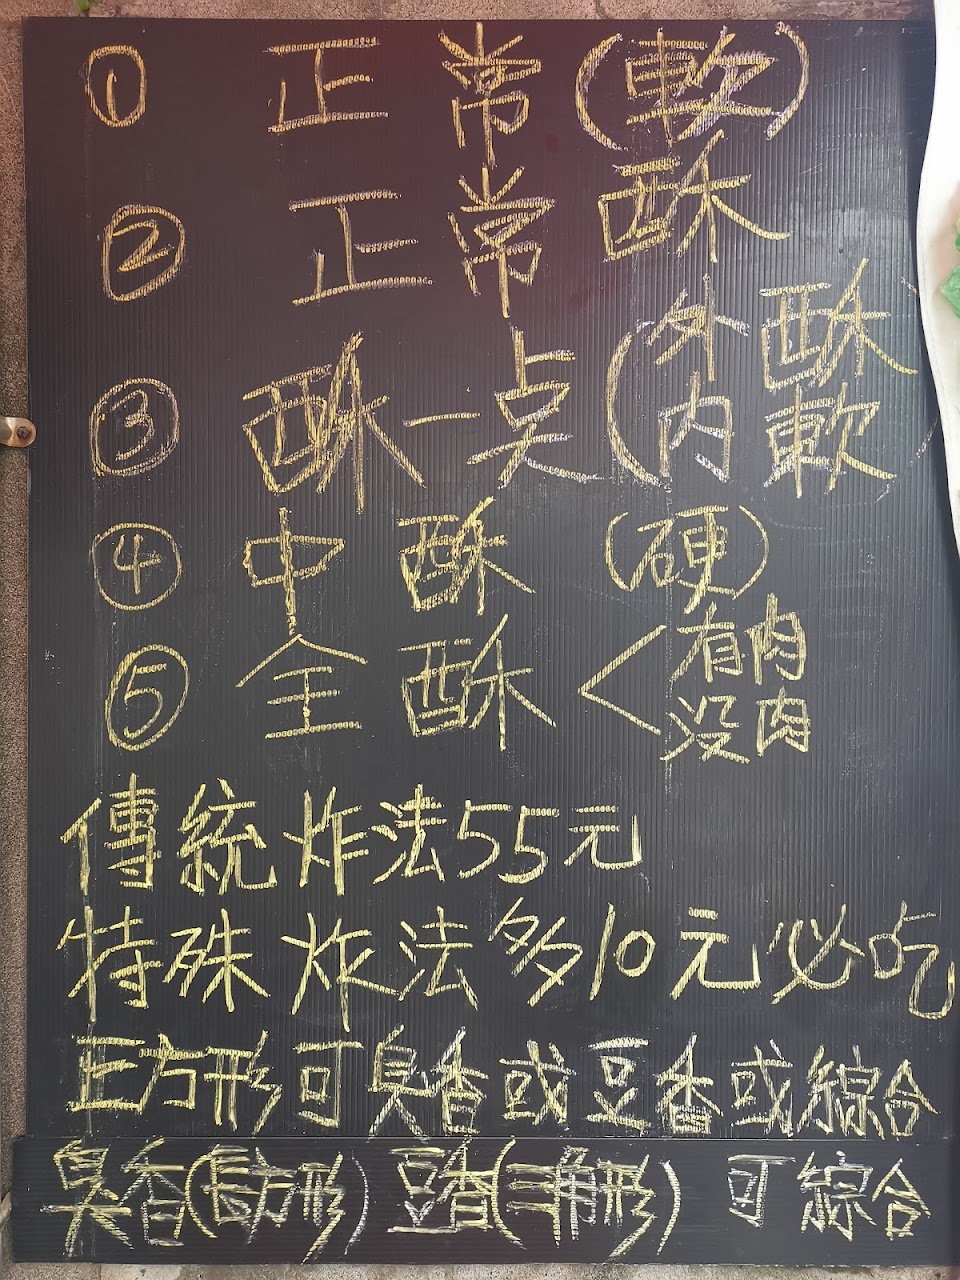 ① 正常(軟)
② 正常酥
③ 酥一点(外酥
內軟)
④ 中酥(硬)
⑤ 全酥<有肉
沒肉
傳統炸法55元
特殊炸法多10元必吃
正方形可臭香或豆香或綜合
臭香(長方形)豆香(三角形)可綜合